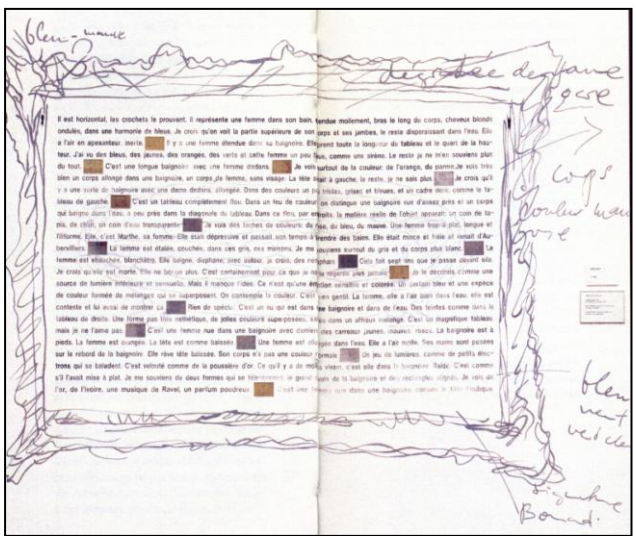 bleu-mauve
Il est horizontal, les crochets le prouvent. Il représente une femme dans son bain, étendue mollement, bras le long du corps, cheveux blonds
ondulés, dans une harmonie de bleus. Je crois qu'on voit la partie supérieure de son corps et ses jambes, le reste disparaissant dans l'eau. Elle
a l'air en apesanteur, inerte. Il y a une femme étendue dans sa baignoire. Elle prend toute la longueur du tableau et le quart de la hau-
teur. J'ai vu des bleus, des jaunes, des orangés, des verts et cette femme un peu floue, comme une sirène. Le reste je ne m'en souviens plus
du tout. C'est une longue baignoire avec une femme dedans. Je vois surtout de la couleur: de l'orange, du parme. Je vois très
bien un corps allongé dans une baignoire, un corps de femme, sans visage. La tête était à gauche, le reste, je ne sais plus. Je crois qu'il
y a une sorte de baignoire avec une dame dedans, allongée. Dans des couleurs un peu tristes, grises et brunes, et un cadre doré, comme le ta-
bleau de gauche. C'est un tableau complètement flou. Dans un jeu de couleurs on distingue une baignoire vue d'assez près et un corps
qui baigne dans l'eau, à peu près dans la diagonale du tableau. Dans ce flou, par endroits, la matière réelle de l'objet apparaît: un coin de ta-
pis, de chair, un coin d'eau transparente. Je vois des taches de couleurs: du rose, du bleu, du mauve. Une femme trop à plat, longue et
filiforme. Elle, c'est Marthe, sa femme. Elle était dépressive et passait son temps à prendre des bains. Elle était mince et frêle et venait d'Au-
bervilliers. La femme est étalée, couchée, dans ces gris, ces marrons. Je me souviens surtout du gris et du corps plus blanc. La
femme est ébauchée, blanchâtre. Elle baigne, diaphane, avec autour, je crois, des nénuphars. Cela fait sept ans que je passe devant elle.
Je crois qu'elle est morte. Elle ne bouge plus. C'est certainement pour ça que je ne la regarde plus jamais. Je le décrirais comme une
source de lumière intérieure et sensuelle. Mais il manque l'idée. Ce n'est qu'une émotion sensible et colorée. Un certain bleu et une espèce
de couleur formée de mélanges qui se superposent. On contemple la couleur. C'est un gentil. La femme, elle a l'air bien dans l'eau, elle est
contente et lui aussi de montrer ça. Rien de spécial. C'est un nu qui est dans une baignoire et dans de l'eau. Des teintes comme dans le
tableau de droite. Une forme pas très esthétique, de jolies couleurs superposées, dans un affreux mélange. C'est un magnifique tableau
mais je ne l'aime pas. C'est une femme nue dans une baignoire avec derrière des carreaux jaunes, mauves, roses. La baignoire est à
pieds. La femme est allongée. La tête est comme baissée. Une femme est allongée dans l'eau. Elle a l'air molle. Ses mains sont posées
sur le rebord de la baignoire. Elle rêve tête baissée. Son corps n'a pas une couleur normale. Un jeu de lumières, comme de petits élec-
trons qui se baladent. C'est velouté comme de la poussière d'or. Ce qu'il y a de moins vivant, c'est elle dans la baignoire fluide. C'est comme
s'il l'avait mise à plat. Je me souviens de deux formes qui se télescopent, le grand ovale de la baignoire et des rectangles alignés. Je vois de
l'or, de l'ivoire, une musique de Ravel, un parfum poudreux. C'est une femme nue dans une baignoire
corps
couleur mauve
bleu
vert
signature
Bonnard